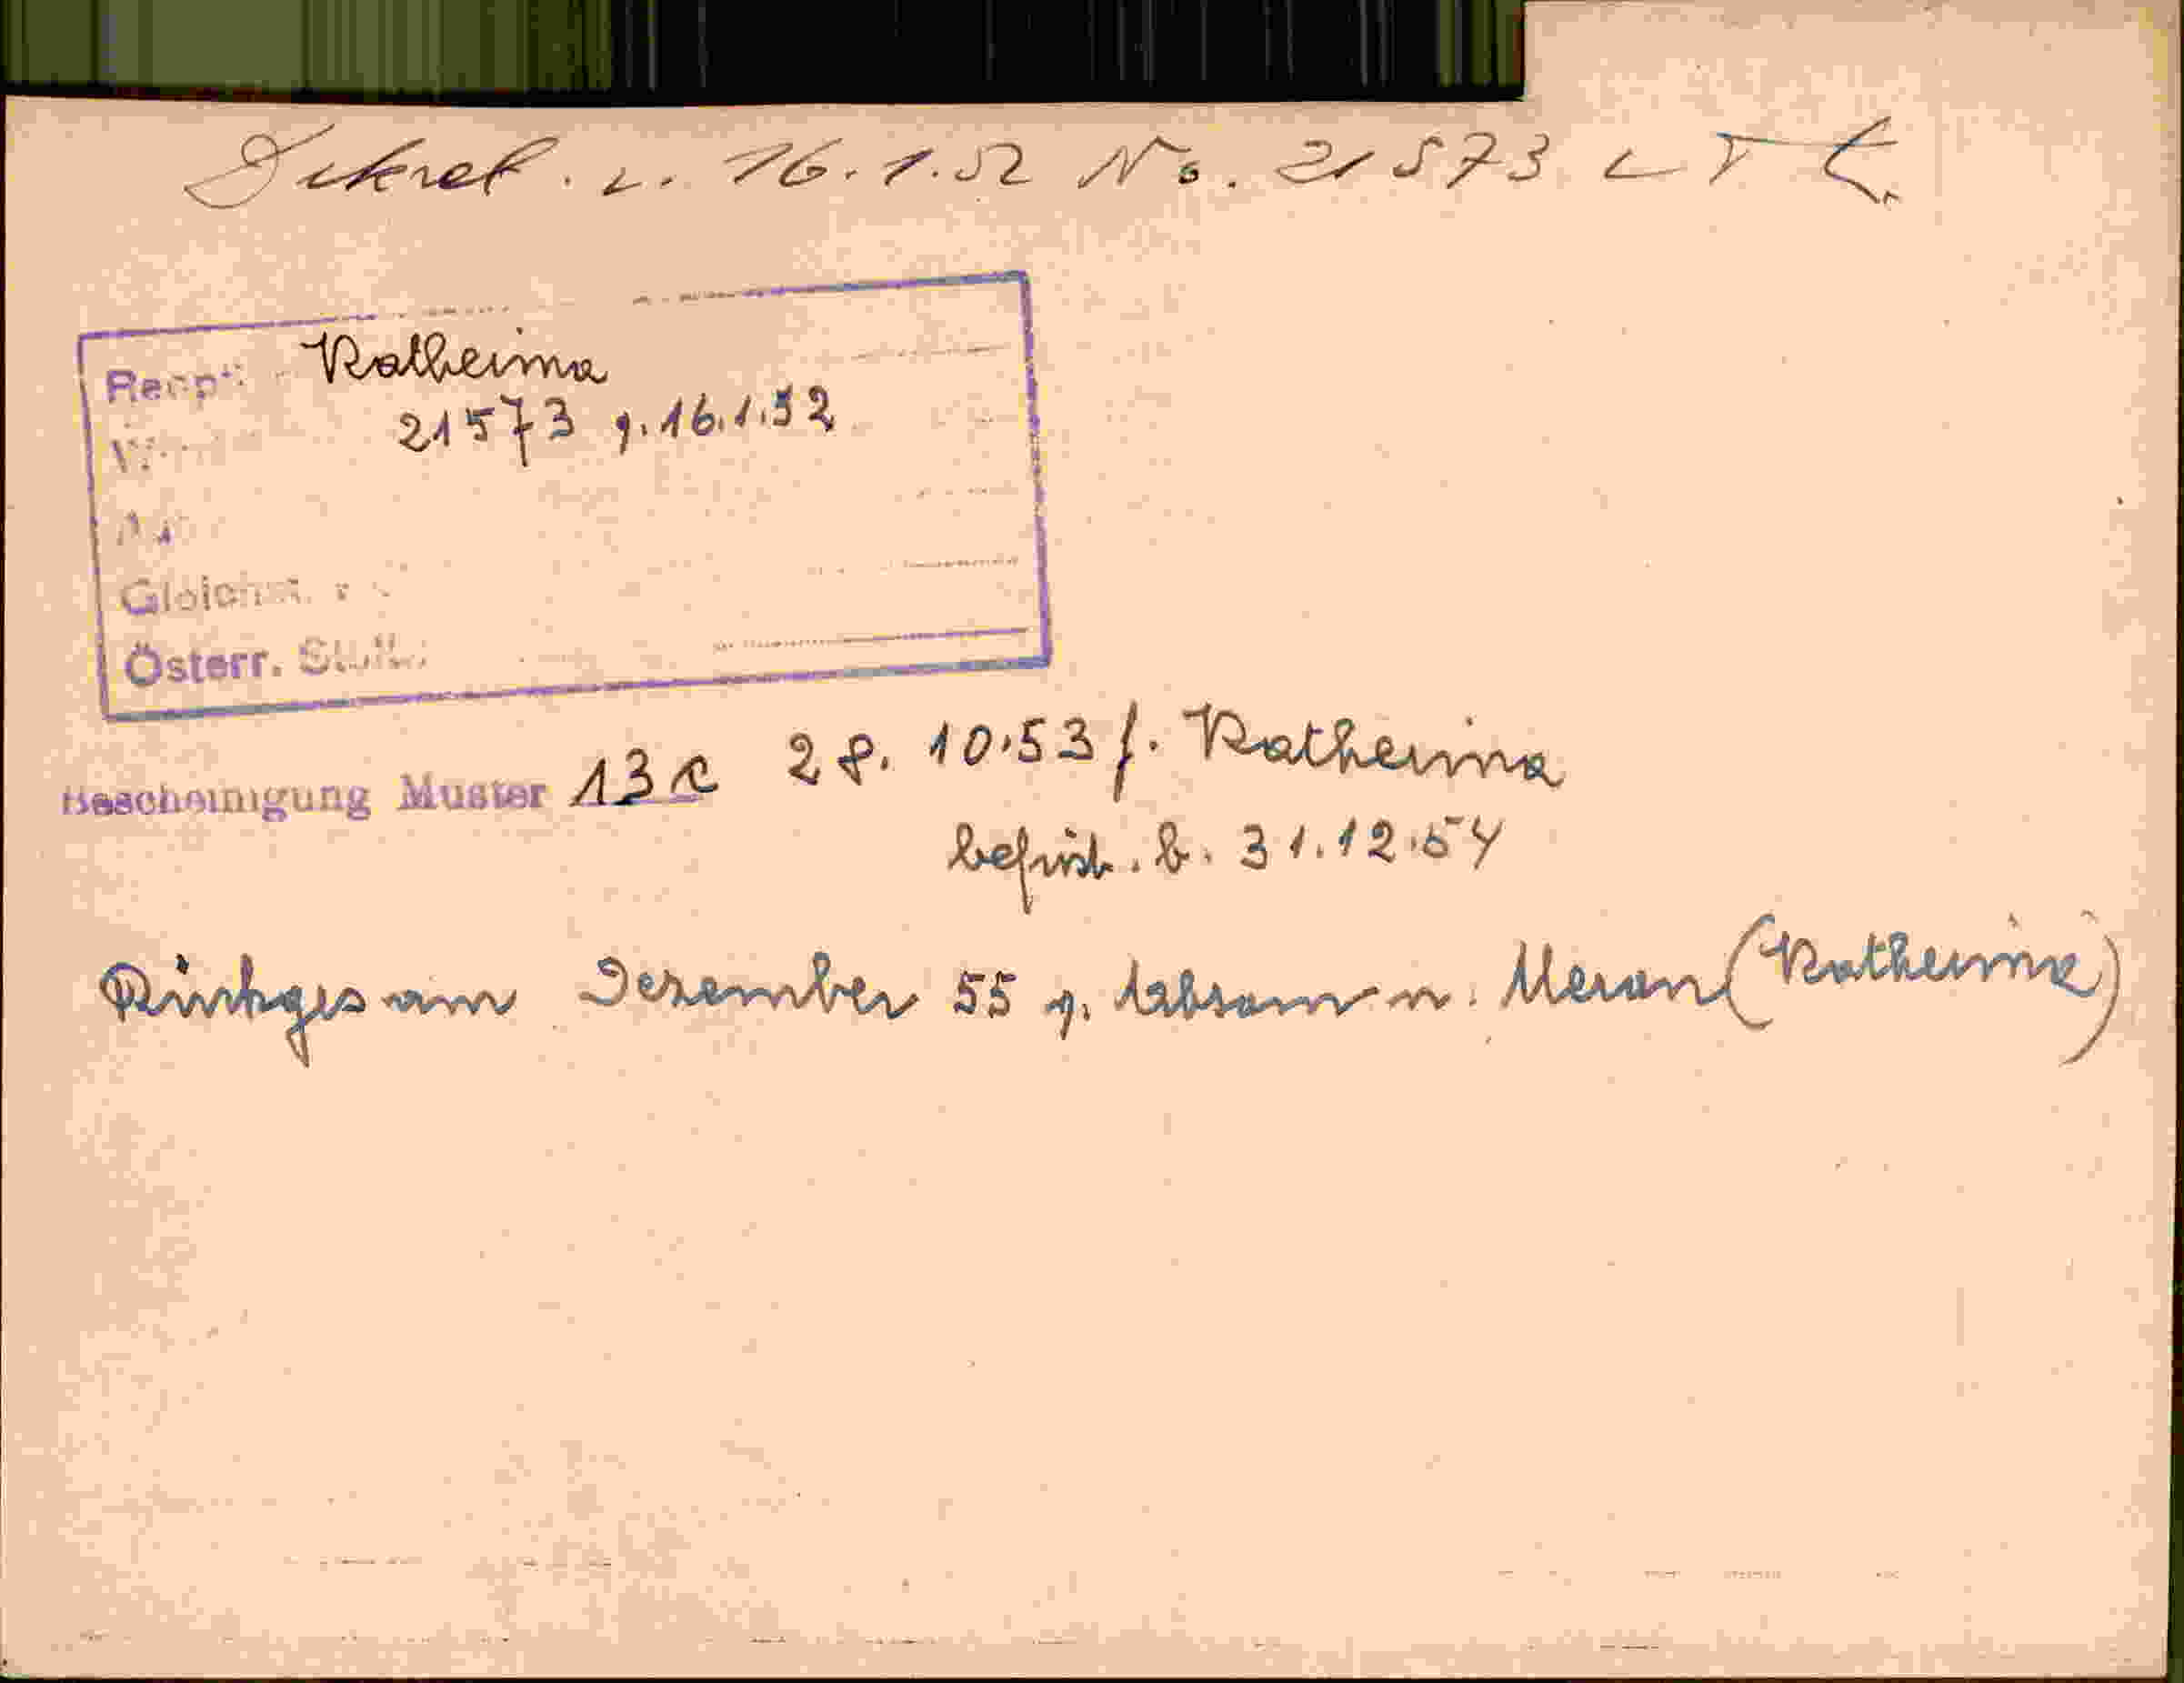 Dekret. v. 16.1.52 No. 21573
Katherina
21573 v. 16.1.52
Österr.
Bescheinigung Muster 13c 28. 10.53 f. Katherina
befrist. b. 31.12.54
Rückges am Dezember 55 v. Absam n. Meran (Katherina)